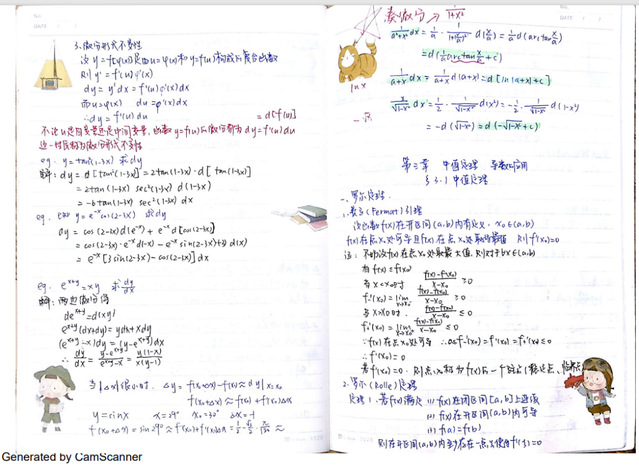 3.微分形式不变性
设 y=f[φ(x)]是由u=φ(x)和y=f(u)构成的复合函数
则 y'=f'(u)φ'(x)
dy=y'dx=f'(u)φ'(x)dx
而u=φ(x) du=φ'(x)dx
∴dy=f'(u)du =d[f(u)]
不论u是自变量还是中间变量,函数y=f(u)的微分都为dy=f'(u)du
这一性质称为微分形式不变性
eg. y=tan²(1-3x) 求dy
解: dy=d[tan²(1-3x)]=2tan(1-3x)·d[tan(1-3x)]
=2tan(1-3x) sec²(1-3x) d(1-3x)
=-6tan(1-3x) sec²(1-3x) dx
eg. y=e^{-x}cos(2-3x) 求dy
dy=cos(2-3x)d(e^{-x})+e^{-x}d[cos(2-3x)]
=cos(2-3x)·e^{-x}d(-x)-e^{-x}sin(2-3x)(-3)d(x)
=e^{-x}[3sin(2-3x)-cos(2-3x)]dx
eg. e^{x+y}=xy 求dy/dx
解:两边微分得
de^{x+y}=d(xy)
e^{x+y}(dx+dy)=ydx+xdy
(e^{x+y}-x)dy=(y-e^{x+y})dx
∴ dy/dx=(y-e^{x+y})/(e^{x+y}-x)=y(1-x)/x(y-1)
当|Δx|很小时, Δy=f(x₀+Δx)-f(x₀)≈dy|x=x₀
f(x₀+Δx)≈f(x₀)+f'(x₀)Δx
y=sinx x=29° x₀=30° Δx=-1
f(x₀+Δx)=sin29°≈f(x₀)+f'(x₀)Δx=
凑微分→ 1/(1+x²)
1/(a²+x²)dx=1/a·1/(1+(x/a)²)d(x/a)=1/a d(arctan x/a)
=d(1/a arctan x/a+c)
1/(a+x)dx=1/(a+x)d(a+x)=d[ln|a+x|+c]
x/√(1-x²)dx=1/2·1/√(1-x²)d(x²)=-1/2·1/√(1-x²)d(1-x²)
=-d(√(1-x²))=d(-√(1-x²)+c)
ln x
第三章 中值定理 导数的应用
§3.1中值定理
一.罗尔定理.
1.费马(Fermat)引理
设函数f(x)在开区间(a,b)内有定义, x₀∈(a,b)
f(x)在点x₀处可导且f(x)在点x₀处取得最值 则f'(x₀)=0
证:不妨设f(x)在点x₀处取最大值,则对∀x∈(a,b)
有f(x)≤f(x₀)
当x<x₀时 (f(x)-f(x₀))/(x-x₀)≥0
f₋'(x₀)=lim (f(x)-f(x₀))/(x-x₀)≥0
当x>x₀时, (f(x)-f(x₀))/(x-x₀)≤0
f₊'(x₀)=lim (f(x)-f(x₀))/(x-x₀)≤0
∵f(x)在点x₀处可导 ∴0≤f₋'(x₀)=f₊'(x₀)=f'(x₀)≤0
∴f'(x₀)=0
若f'(x₀)=0 则点x₀称为f(x)的一个驻点(稳定点、临界点)
2.罗尔(Rolle)定理
定理1.若f(x)满足 (1)f(x)在闭区间[a,b]上连续
(2)f(x)在开区间(a,b)内可导
(3)f(a)=f(b)
则在开区间(a,b)内至少存在一点ξ使得f'(ξ)=0
Generated by CamScanner